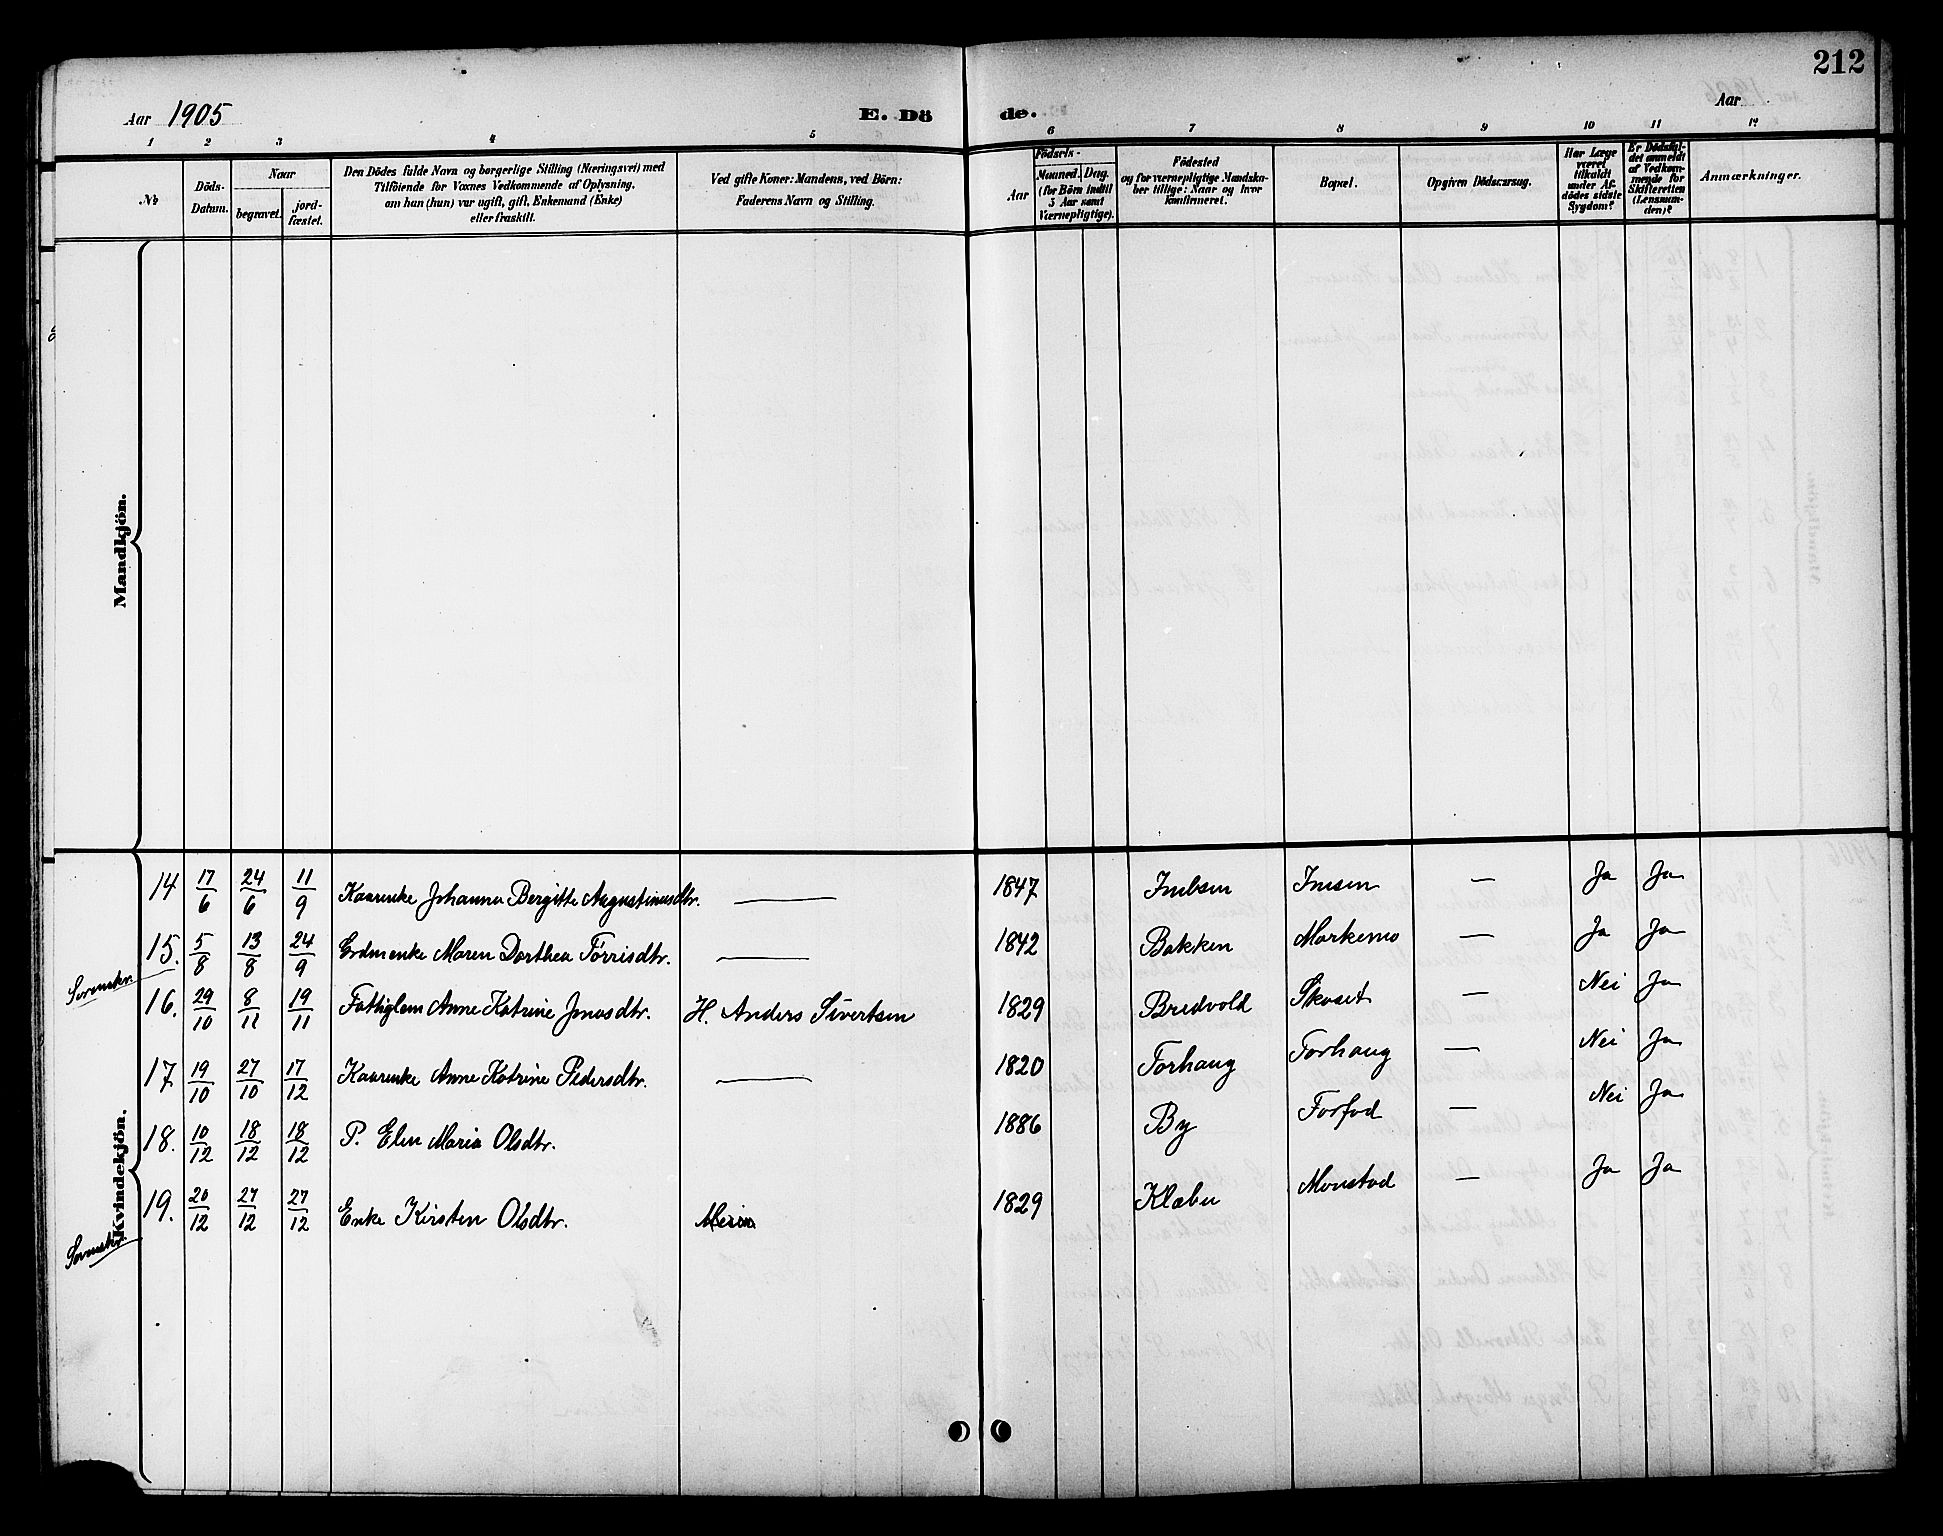 212
Aar 1905 E. Döde. Aar
1 2 3 4 5 6 7 8 9 10 11 12
No Döds-Datum. Naar begravet. jord-fæstet. Den Dödes fulde Navn og borgerlige Stilling (Næringsvei) med Tilföiende for Voxnes Vedkommende af Oplysning, om han (hun) var ugift, gift, Enkemand (Enke) eller fraskilt. Ved gifte Koner: Mandens, ved Börn: Faderens Navn og Stilling. Födsels- Aar Maaned. Dag. (for Börn indtil 5 Aar samt Værnepligtige). Födested og for værnepligtige Mandskaber tillige: Naar og hvor konfirmeret. Bopæl. Opgiven Dödsaarsag. Har Læge været tilkaldt under Afdödes sidste Sygdom? Er Dödsfaldet anmeldt af Vedkommende for Skifteretten (Lensmanden)? Anmærkninger.
Mandkjön.
Kvindekjön.
14 17/6 24/6 11/9 Kaarenke Johanna Bergitte Augustinusdtr. — 1847 Inlsen Imsen — Ja Ja
15. 5/8 13/8 24/9 Erdmenke Maren Dorthea Tørrisdtr. — 1842 Bakken Morkemo — Ja Ja
16. 29/10 8/11 19/11 Fattiglem Anne Katrine Jonasdtr. H. Anders Sivertsen 1829 Bredvold Skaset — Nei Ja
17 19/10 27/10 17/12 Kaarenke Anne Katrine Pedersdtr. — 1820 Forhaug Forhaug — Nei Ja
18. 10/12 18/12 18/12 P. Elen Maria Olsdtr. 1886 By Forfod — Nei Ja
19. 20/12 27/12 27/12 Enke Kirsten Olsdtr. 1829 Klæbu Monstad — Ja Ja